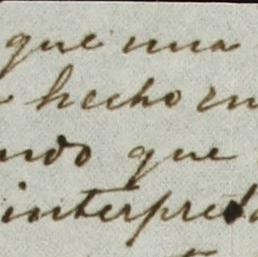 que una
hecho en
ndo que
interpreta